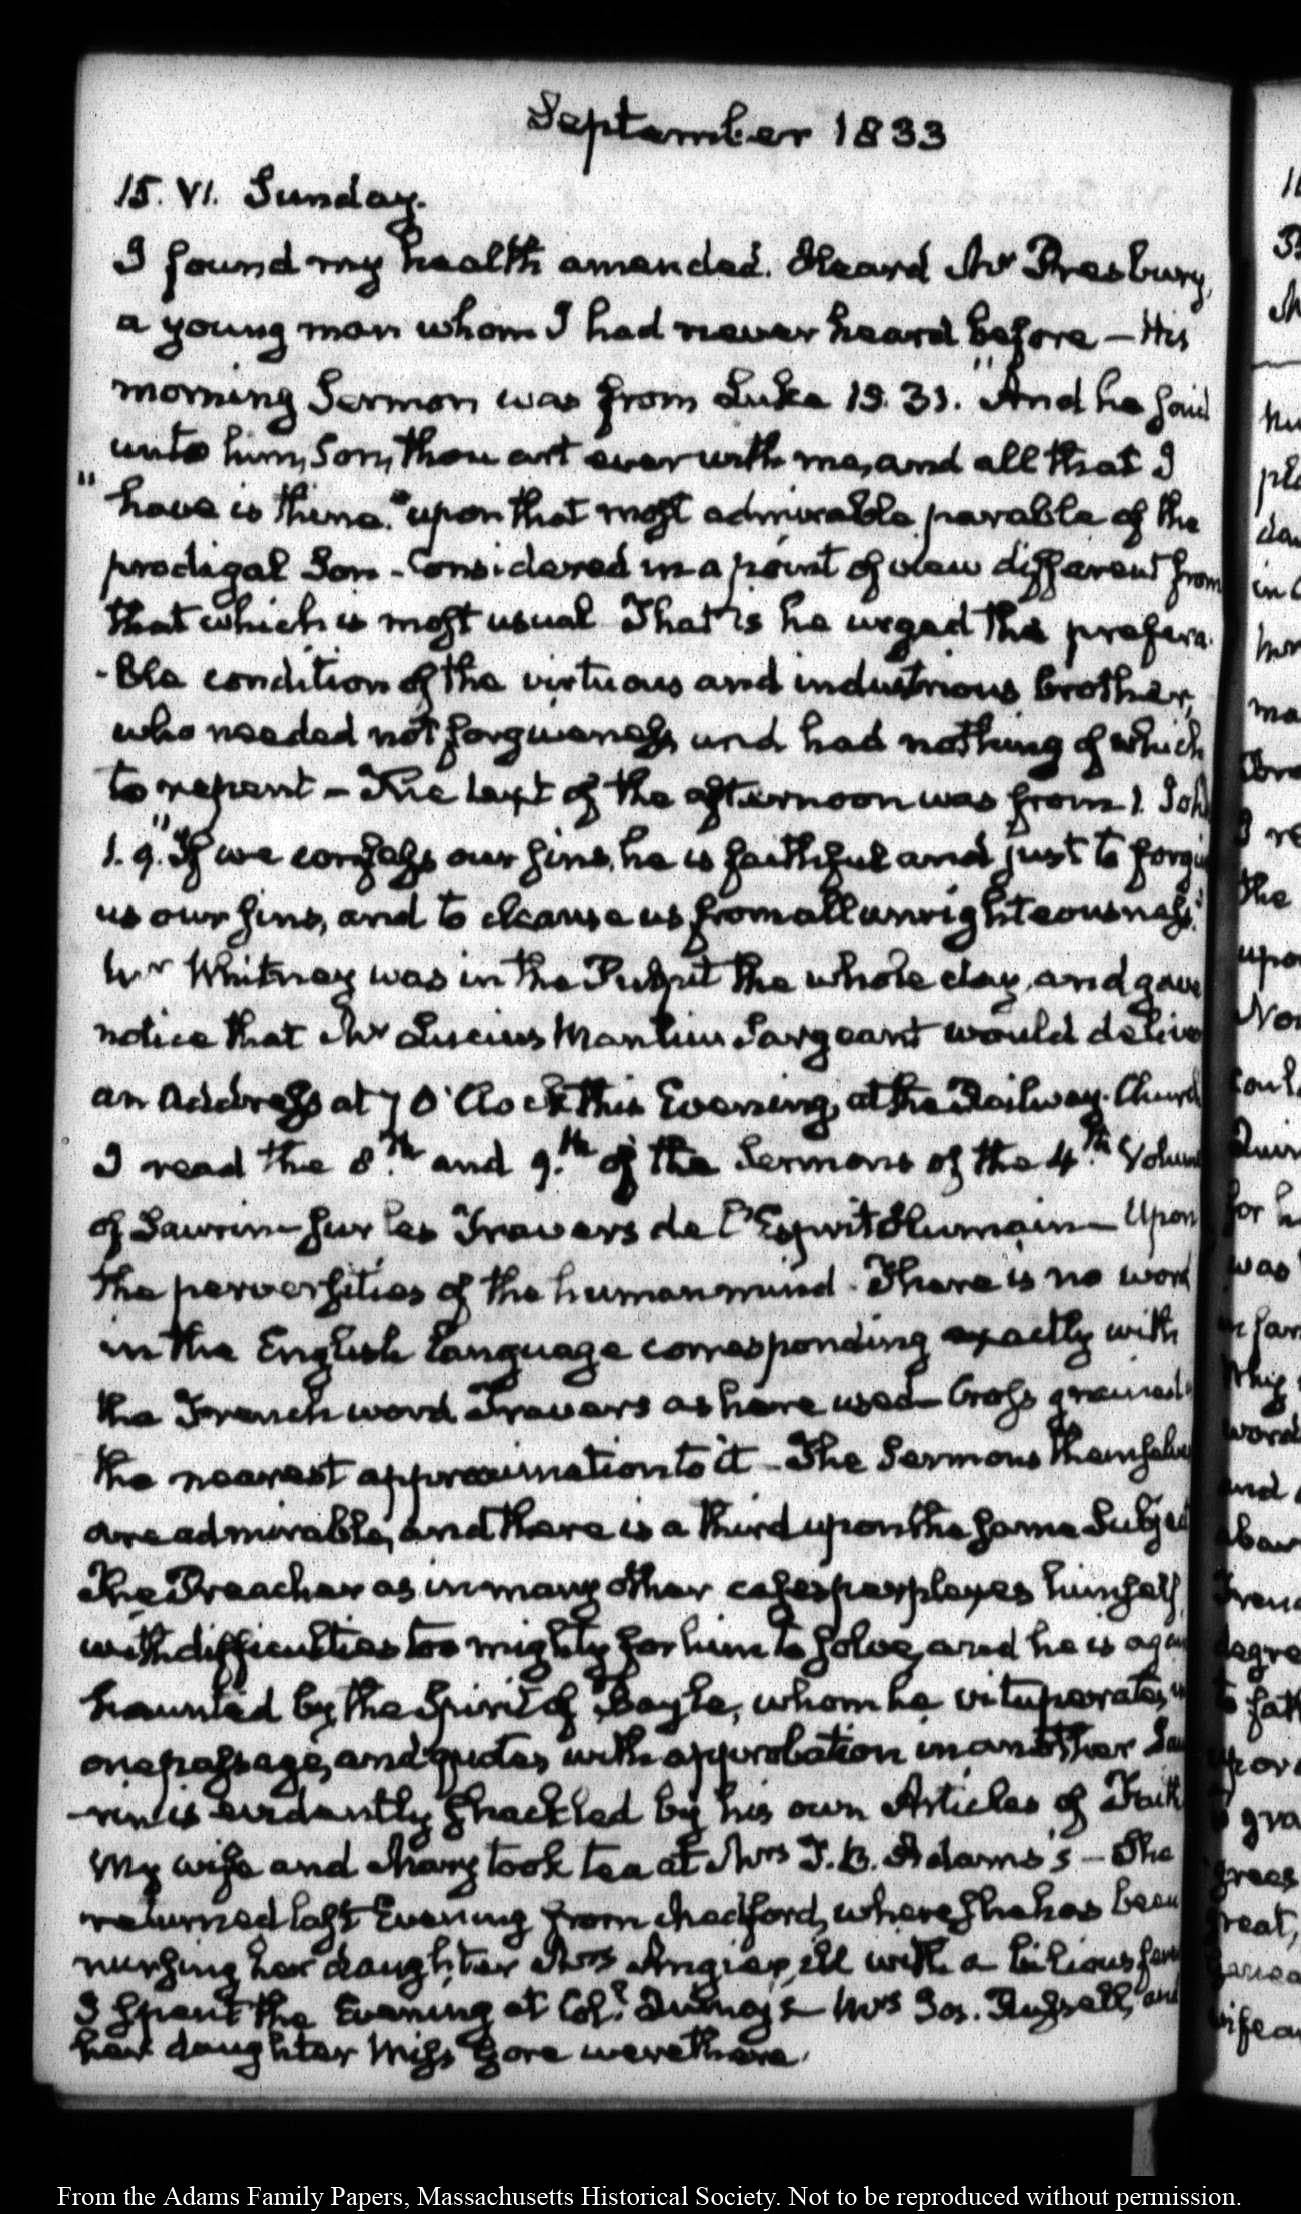 September 1833
15. VI. Sunday.
I found my health amended. Heard Mr Presbury,
a young man whom I had never heard before — His
morning Sermon was from Luke 15. 31. "And he said
unto him, Son, thou art ever with me, and all that I
"have is thine." upon that most admirable parable of the
prodigal Son - Considered in a point of view different from
that which is most usual That is he urged the prefera-
-ble condition of the virtuous and industrious brother,
who needed not forgiveness and had nothing of which
to repent – The text of the afternoon was from 1. Joh
1. 9. "If we confess our sins, he is faithful and just to forgi
us our sins, and to cleanse us from all unrighteousness."
Mr Whitney was in the Pulpit the whole day, and gave
notice that Mr Lucius Manlius Sargeant would delive
an Address at 7 O'Clock this Evening, at the Railway Church
I read the 8.th and 9.th of the Sermons of the 4.th Volum
of Saurin — sur les Travers de l'Esprit Humain — Upon
the perversities of the human mind. There is no word
in the English language corresponding exactly with
the French word Travers as here used — Cross grained
the nearest approximation to it – The Sermons themselve
are admirable, and there is a third upon the same Subject
The Preacher as in many other cases perplexes himself
with difficulties too mighty for him to solve, and he is again
haunted by the Spirit of Bayle, whom he vituperates in
one passage, and quotes with approbation in another Sau
-rin is evidently shackled by his own Articles of Faith
My wife and Mary took tea at Mrs T. B. Adams's – She
returned last Evening from Medford, where she has been
nursing her daughter Mrs Angier, ill with a bilious fever
I spent the Evening at Col.l Quincy's — Mrs Jos. Russell, and
her daughter Miss Gore were there.
11
nu
in
ma
the
upo
was
word
and
degre
great,
wife a
From the Adams Family Papers, Massachusetts Historical Society. Not to be reproduced without permission.